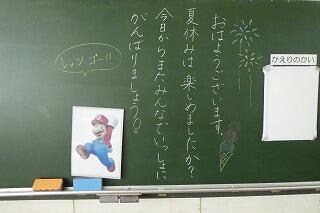 おはようございます。
夏休みは楽しめましたか？
今日からまたみんなでいっしょに
がんばりましょう。
レッツ、ゴー!!
かえりのかい